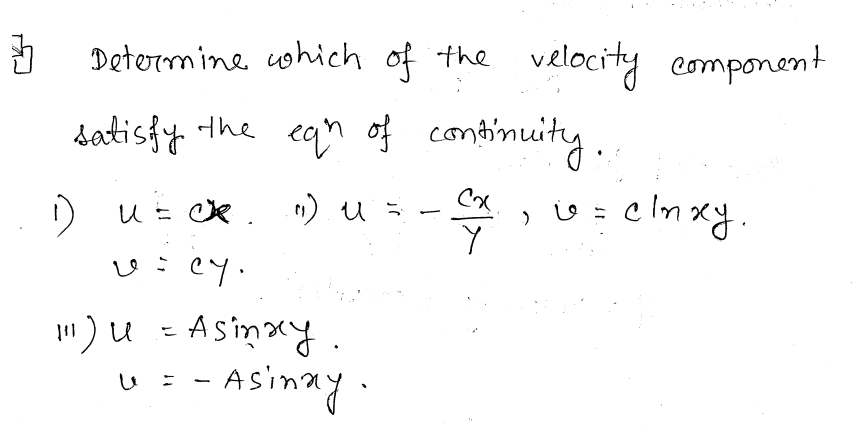 Determine which of the velocity component
satisfy the eqn of continuity.
i) u = cx. ii) u = - Cx/Y , v = c ln xy.
v = cy.
iii) u = A sin xy.
v = - A sin xy.